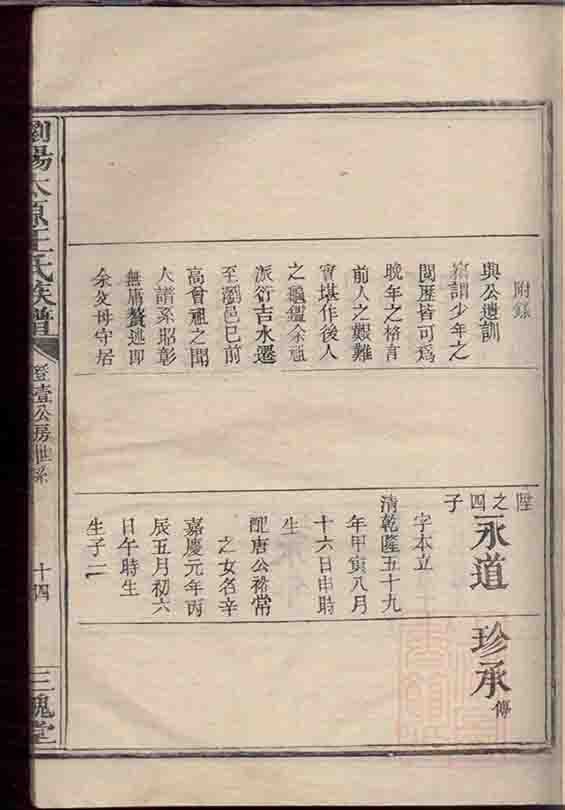 附錄
與公遺訓
竊謂少年之
閱歷皆可爲
晚年之格言
前人之艱難
實堪作後人
之龜鑑余祖
派衍吉水遷
至瀏邑已前
高曾祖之聞
人譜系昭彰
無庸贅述即
余父母守居
陞之四子
永道
字本立
清乾隆五十九
年甲寅八月
十六日申時
生
配唐公裕常
之女名辛
嘉慶元年丙
辰五月初六
日午時生
生子二
珍承
傳
瀏陽太原王氏族譜
登壹公房世系
十四
三槐堂